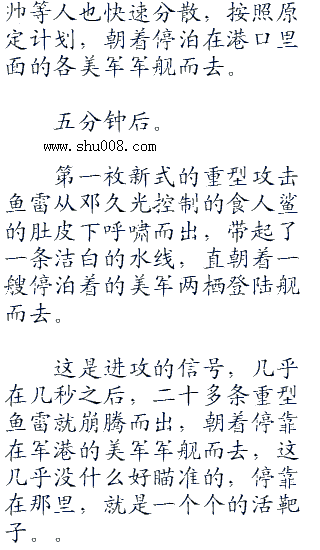 帅等人也快速分散，按照原
定计划，朝着停泊在港口里
面的各美军军舰而去。
五分钟后。
www.shu008.com
第一枚新式的重型攻击
鱼雷从邓久光控制的食人鲨
的肚皮下呼啸而出，带起了
一条洁白的水线，直朝着一
艘停泊着的美军两栖登陆舰
而去。
这是进攻的信号，几乎
在几秒之后，二十多条重型
鱼雷就崩腾而出，朝着停靠
在军港的美军军舰而去，这
几乎没什么好瞄准的，停靠
在那里，就是一个个的活靶
子。。